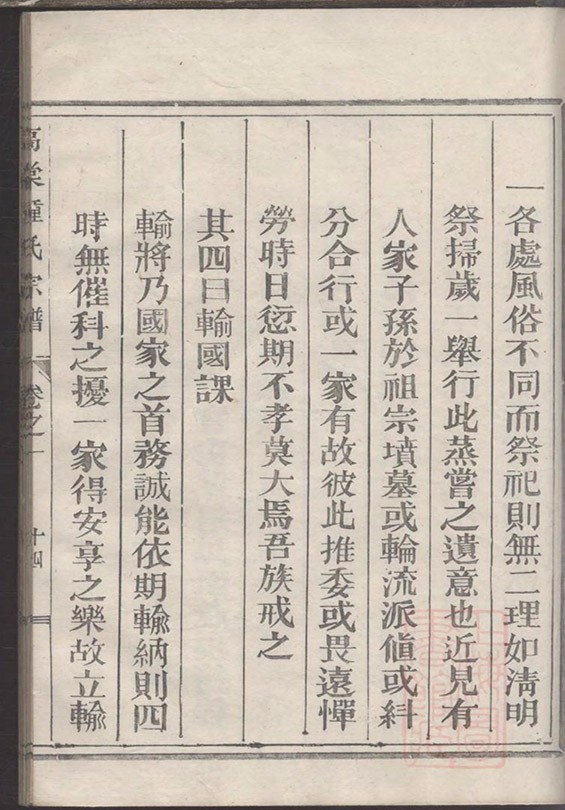 一各處風俗不同而祭祀則無二理如淸明
祭掃歲一舉行此蒸嘗之遺意也近見有
人家子孫於祖宗墳墓或輪流派値或糾
分合行或一家有故彼此推委或畏遠憚
勞時日愆期不孝莫大焉吾族戒之
其四曰輸國課
輸將乃國家之首務誠能依期輸納則四
時無催科之擾一家得安享之樂故立輸
氏宗譜
卷之一
十四